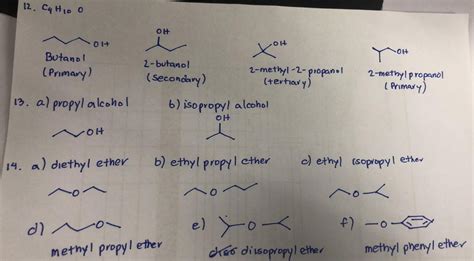 12. C4H10O
OH
OH
OH
OH
Butanol
(Primary)
2-butanol
(secondary)
2-methyl-2-propanol
(tertiary)
2-methyl propanol
(Primary)
13. a) propyl alcohol b) isopropyl alcohol
OH
OH
14. a) diethyl ether b) ethyl propyl ether c) ethyl isopropyl ether
O
O
O
d) O e) O f) O
methyl propyl ether diisopropyl ether methyl phenyl ether